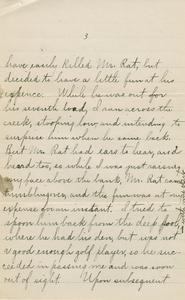 3
have easily killed Mr. Rat, but
decided to have a little fun at his
expence. While he was out for
his seventh load, I ran across the
creek, stooping low, and intending to
surprise him when he came back.
But Mr. Rat had ears to hear, and
heard too, so while I was just raising
my face above the bank, Mr. Rat came
and the fun was at my
expense for an instant. I tried to
spoon him back from the deep pool,
where he had his den, but was not
a good enough golf player, so he suc-
ceeded in passing me and was soon
out of sight. Upon subsequent